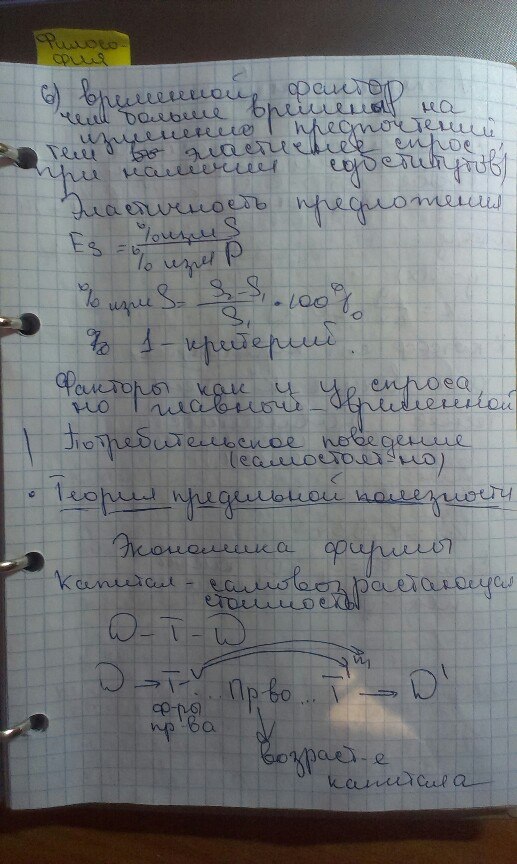 Филосо-
фия
6) временной фактор
чем больше времены на
изменению предпочтений,
тем эластичнее спрос,
при наличии субститутов)
Эластичность предложения
Es = % изм S
% изм P
% изм S = S₂ - S₁ · 100%
S₁
% 1 - критерий.
Факторы как и у спроса,
но главный - временной
Потребительское поведение
(самостоят-но)
• Теория предельной полезности
Экономика фирмы
Капитал - самовозрастающая
стоимость
D - T - D
D → T - ... Пр-во ... T' → D'
ф-ры
пр-ва
возраст-е
капитала